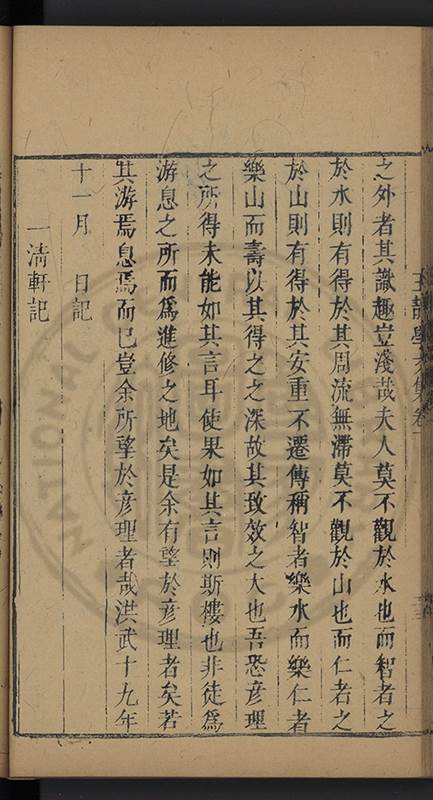 之外者其識趣豈淺哉夫人莫不觀於水也而智者之
於水則有得於其周流無滯莫不觀於山也而仁者之
於山則有得於其安重不遷傳稱智者樂水而樂仁者
樂山而壽以其得之之深故其致效之大也吾恐彦理
之所得未能如其言耳使果如其言則斯樓也非徒爲
游息之所而爲進修之地矣是余有望於彦理者矣若
其游焉息焉而已豈余所望於彦理者哉洪武十九年
十一月　日記
一清軒記